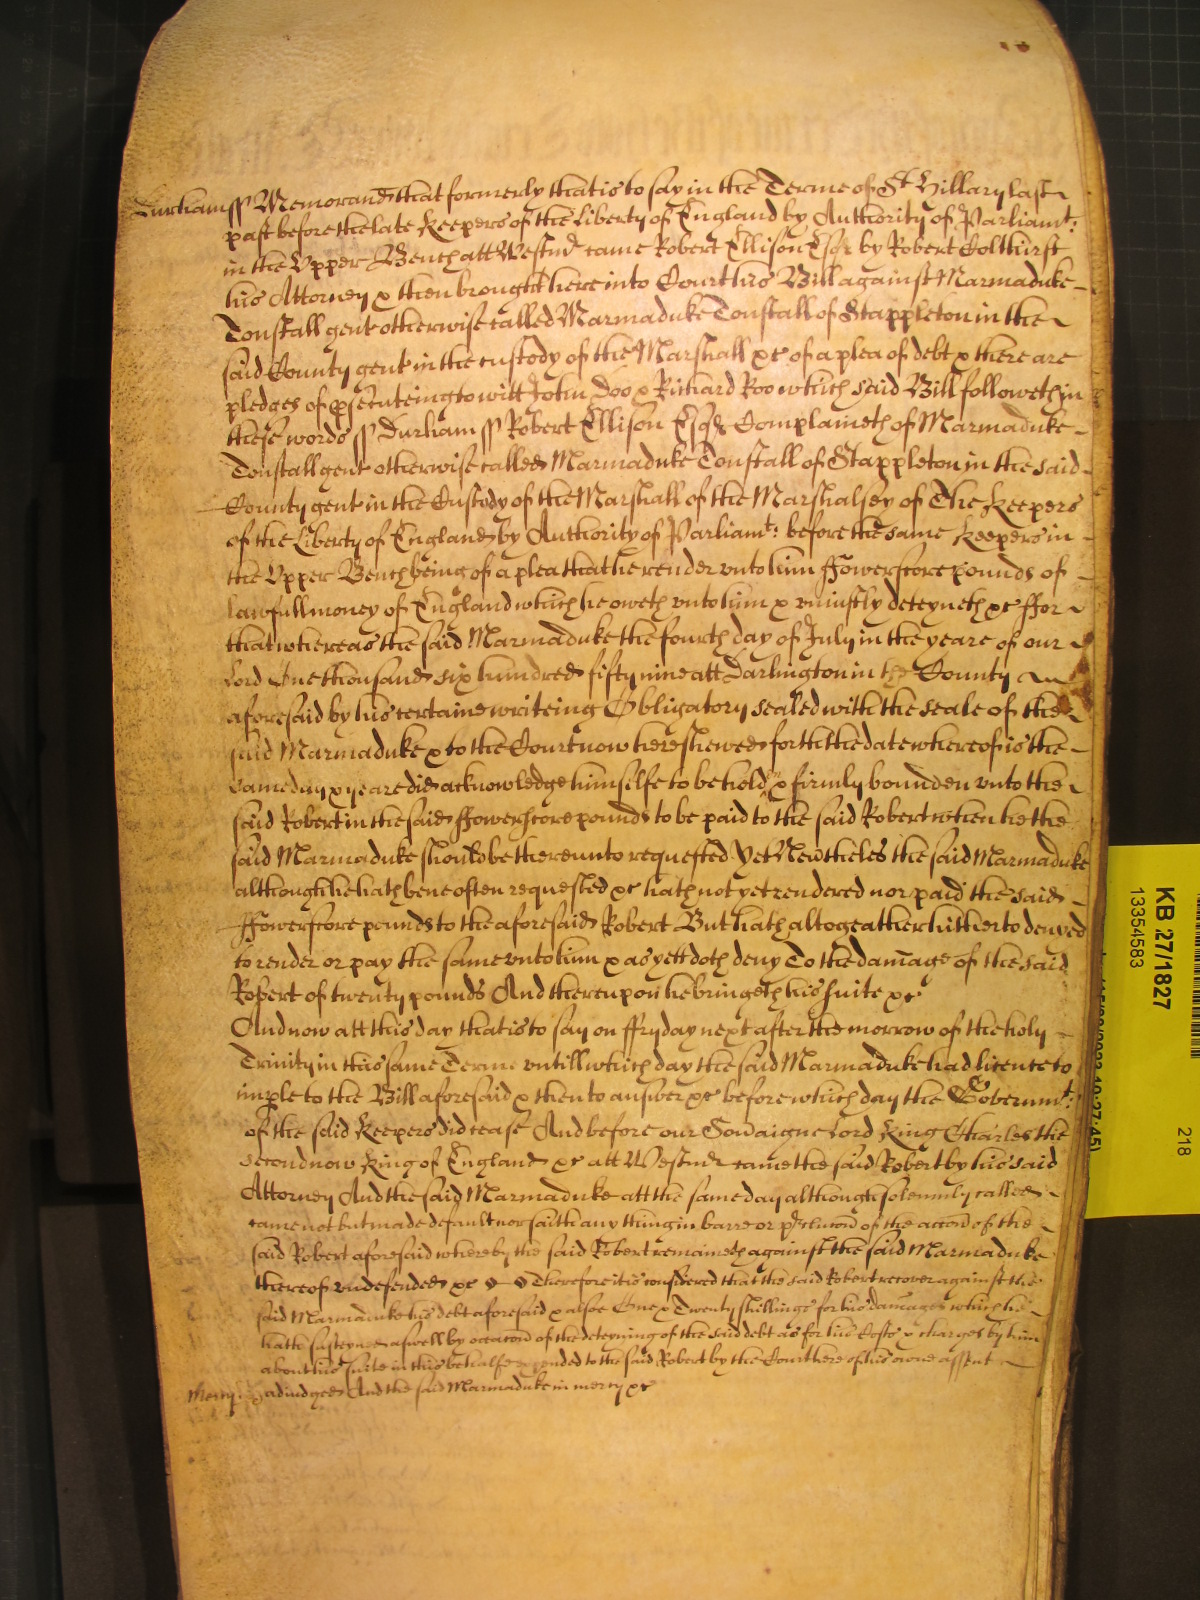 Durham ss Memorand that formerly that is to say in the Terme of St Hillary last
past before the late Keepers of the Liberty of England by Authority of Parliamt:
in the Upper Bench att Westmr came Robert Ellison Esqr by Robert Colthirst
his Attorney & then brought here into Court his Bill against Marmaduke
Tonstall gent otherwise called Marmaduke Tonstall of Stappleton in the
said County gent in the custody of the Marshall &c of a plea of debt & there are
pledges of psecuteing to witt John Doo & Richard Roo which said Bill followeth in
these words ss Durham ss Robert Ellison Esqr Complaineth of Marmaduke
Tonstall gent otherwise called Marmaduke Tonstall of Stappleton in the said
County gent in the Custody of the Marshall of the Marshalsey of The Keepers
of the Liberty of England by Authority of Parliamt: before the same Keepers in
the Upper Bench being of a plea that he render unto him ffowerscore pounds of
lawfull money of England which he oweth unto him & uniustly deteyneth &c ffor
that whereas the said Marmaduke the fourth day of July in the yeare of our
Lord One thousand six hundred fifty nine att Darlington in the County
aforesaid by his certaine writeing Obligatory sealed with the seale of the
said Marmaduke & to the Court now here shewed forth the date whereof is the
same day & yeare did acknowledge himselfe to be hold & firmly bounden unto the
said Robert in the said ffowerscore pounds to be paid to the said Robert when he the
said Marmaduke should be thereunto requested Yet Nevtheles the said Marmaduke
although he hath bene often requested &c hath not yet rendered nor paid the said
ffowerscore pounds to the aforesaid Robert But hath altogeather hitherto denyed
to render or pay the same unto him & as yett doth deny To the damage of the said
Robert of twenty pounds And thereupon he bringeth his suite &c
And now att this day that is to say on ffryday next after the morrow of the holy
Trinity in this same Terme untill which day the said Marmaduke had licence to
imple to the Bill aforesaid & then to answer &c before which day the Governmt:
of the said Keepers did cease And before our Sovaigne Lord King Charles the
second now King of England &c att Westmr came the said Robert by his said
Attorney And the said Marmaduke att the same day although solemnly called
came not but made default nor saith any thing in barre or pclucon of the accon of the
said Robert aforesaid whereby the said Robert remaineth against the said Marmaduke
thereof undefended &c Therefore itis considered that the said Robert recover against the
said Marmaduke his debt aforesaid & alsoe One & Twenty shillings for his damages which he
hath susteyned aswell by occacon of the deteyning of the said debt as for his Costs & charges by him
about his suite in this behalfe expended to the said Robert by the Court here of his owne assent
Mercy adiudged And the said Marmaduke in mercy &c
KB 27/1827
13354583
218